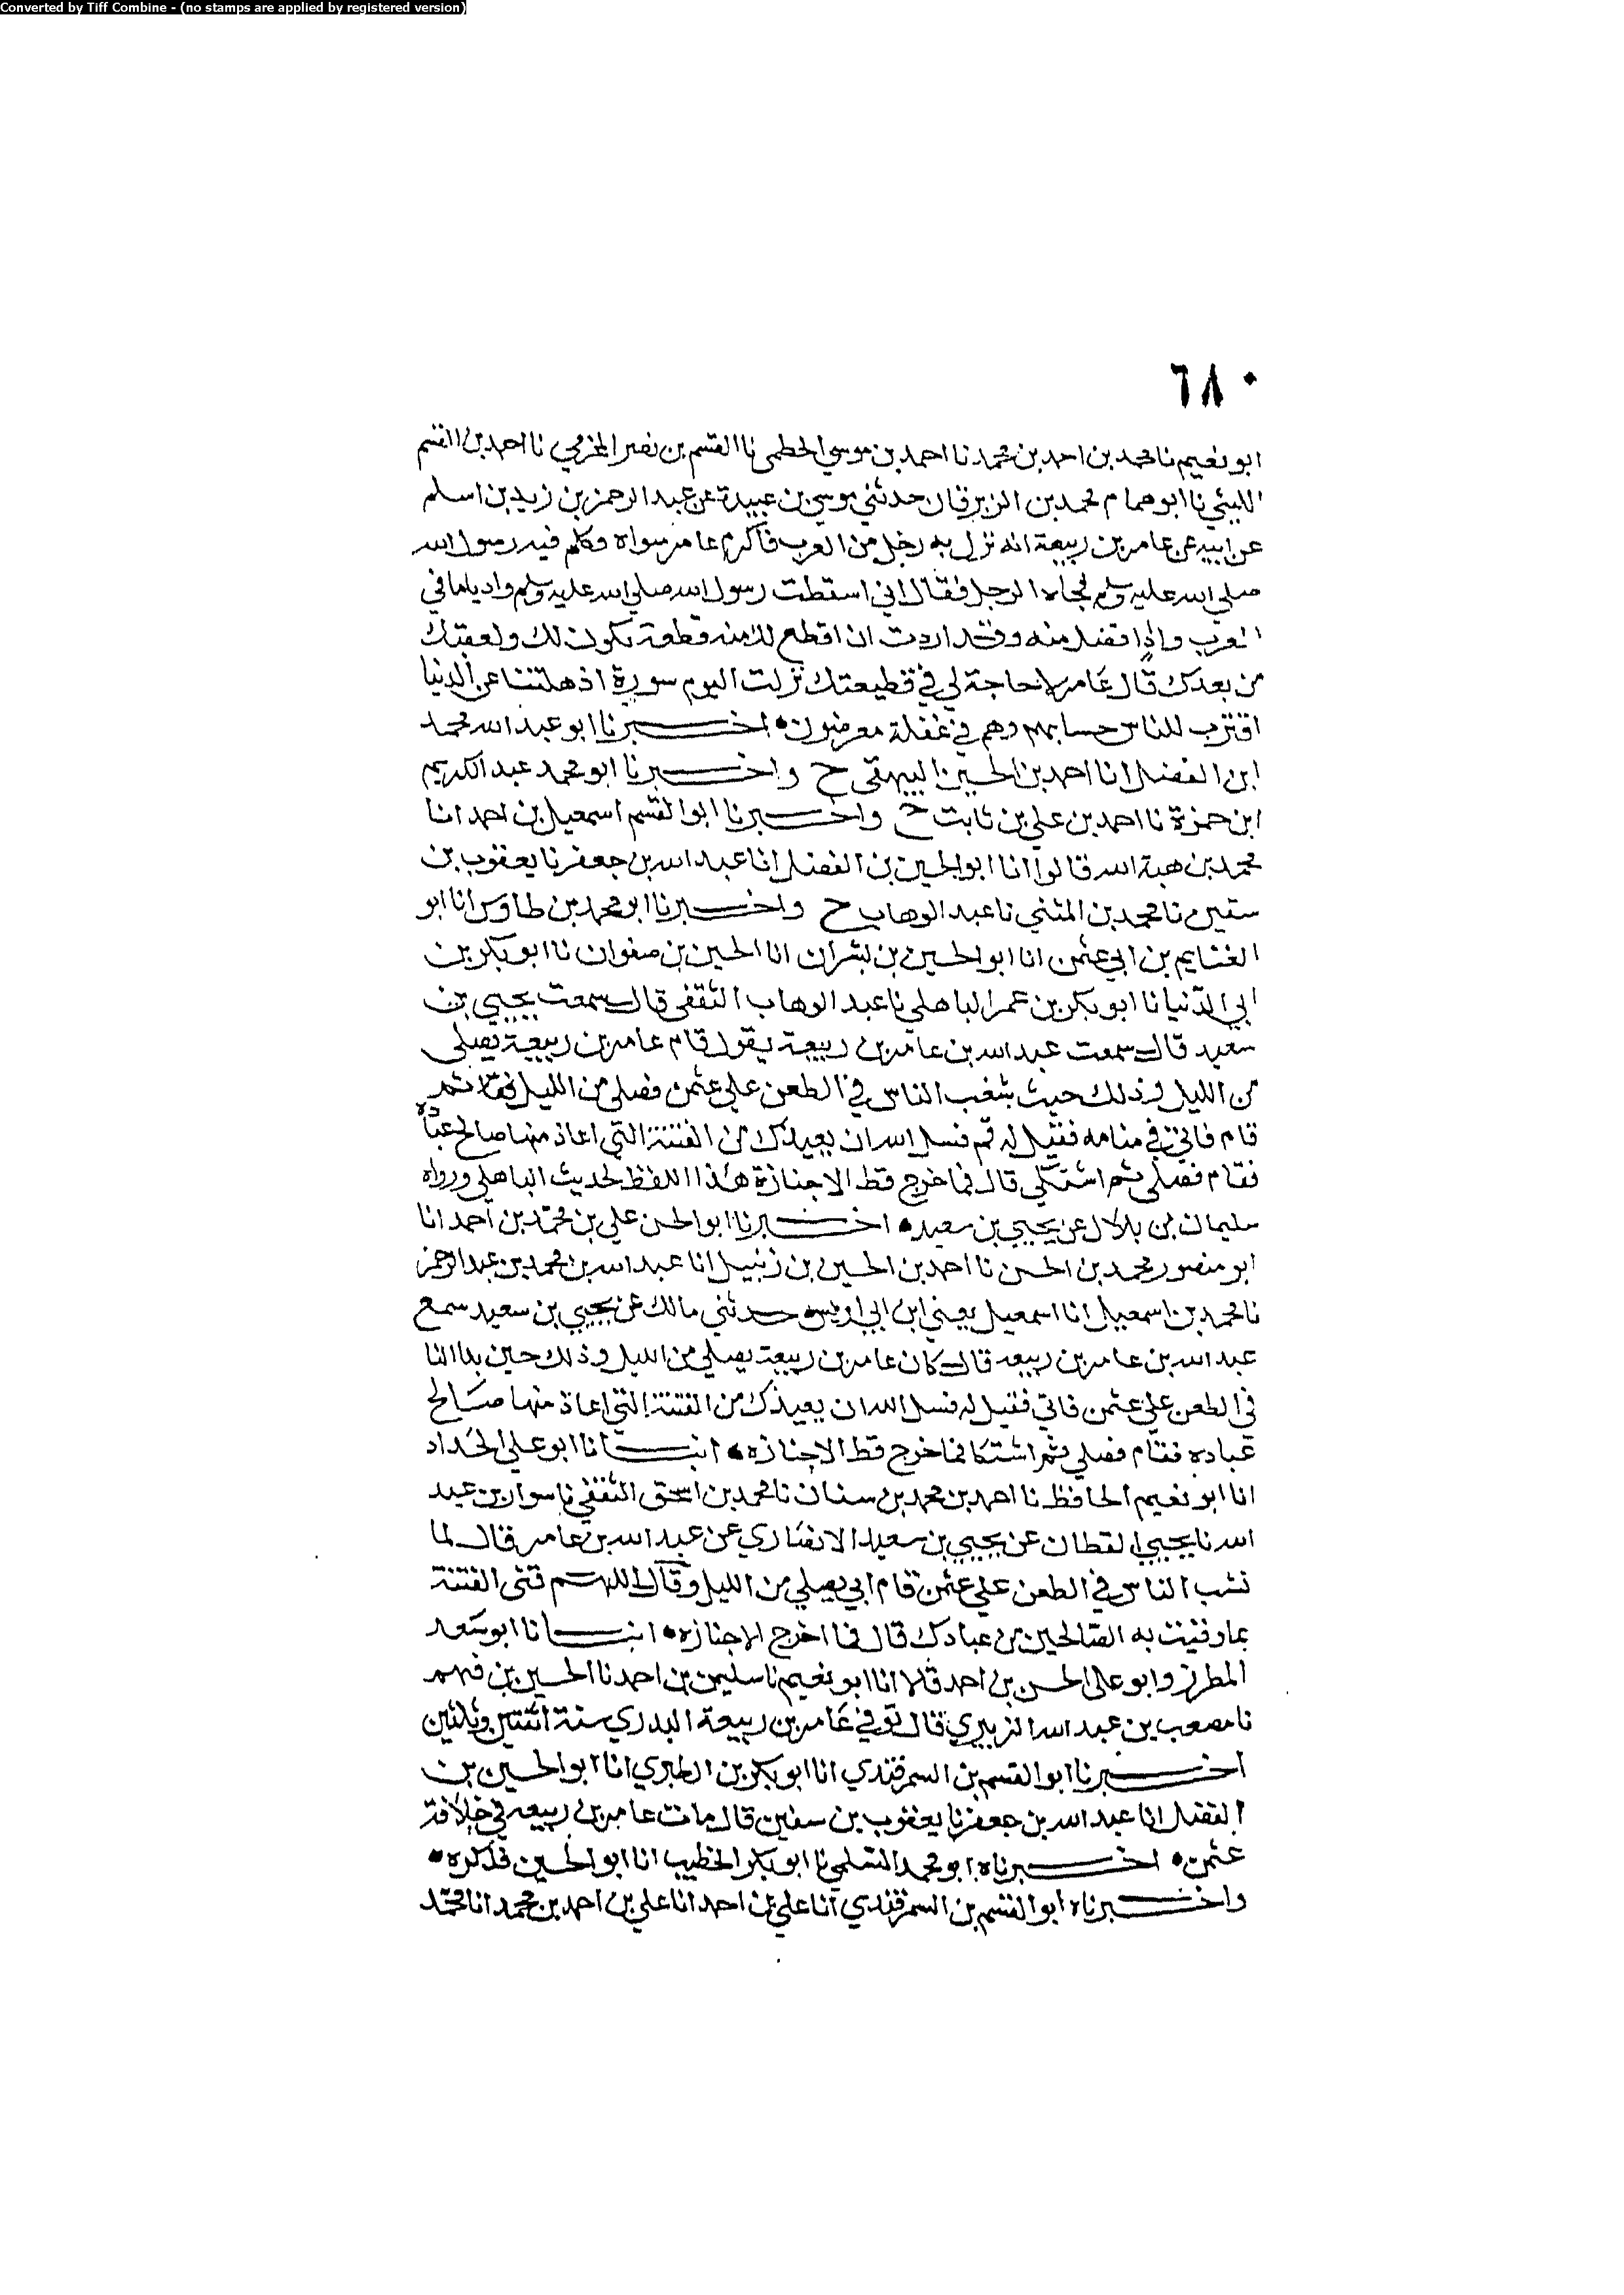 Converted by Tiff Combine - (no stamps are applied by registered version)
٦٨٠
ابو نعيم نا محمد بن احمد بن محمد نا احمد بن موسي الخطمي نا القسم بن نصر المخرمي نا احمد بن القسم
الليثي نا ابو همام محمد بن الزبرقان حدثني موسي بن عبيدة عن عبد الرحمن بن زيد بن اسلم
عن ابيه عن عامر بن ربيعة انه نزل به رجل من العرب فاكرم عامر مثواه وكلم فيه رسول الله
صلي الله عليه وسلم فجاه الرجل فقال اني استقطعت رسول الله صلي الله عليه وسلم واديا ما في
العرب واد افضل منه وقد اردت ان اقطع لك منه قطعة تكون لك ولعقبك
من بعدك قال عامر لا حاجة لي في قطيعتك نزلت اليوم سورة اذهلتنا عن الدنيا
اقترب للناس حسابهم وهم في غفلة معرضون • اخبرنا ابو عبد الله محمد
ابن الفضل انا احمد بن الحسين البيهقي ح واخبرنا ابو محمد عبد الكريم
ابن حمزة نا احمد بن علي بن ثابت ح واخبرنا ابو القسم اسمعيل بن احمد انا
محمد بن هبة الله قالوا انا ابو الحسين بن الفضل انا عبد الله بن جعفر نا يعقوب بن
سفين نا محمد بن المثني نا عبد الوهاب ح واخبرنا ابو محمد بن طاوس انا ابو
الغنايم بن ابي عثمن انا ابو الحسين بن بشران انا الحسين بن صفوان نا ابو بكر بن
ابي الدنيا نا ابو بكر بن عمر الباهلي نا عبد الوهاب الثقفي قال سمعت يحيي بن
سعيد قال سمعت عبد الله بن عامر بن ربيعة يقول قام عامر بن ربيعة يصلي
من الليل وذلك حيث شغب الناس في الطعن علي عثمن فصلي من الليل ثم
قام فاتي في منامه فقيل له قم فسل الله ان يعيذك من الفتنة التي اعاذ منها صالح عباده
فقام فصلي ثم اشتكي قال فما خرج قط الا جنازة هذا اللفظ لحديث الباهلي ورواه
سليمان بن بلال عن يحيي بن سعيد • اخبرنا ابو الحسن علي بن محمد بن احمد انا
ابو منصور محمد بن الحسن نا احمد بن الحسين بن زنبيل انا عبد الله بن محمد بن عبد الرحمن
نا محمد بن اسمعيل انا اسمعيل يعني ابن ابي اويس حدثني مالك عن يحيي بن سعيد سمع
عبد الله بن عامر بن ربيعه قال كان عامر بن ربيعة يصلي من الليل وذلك حين بدا النا
في الطعن علي عثمن فاتي فقيل له فسل الله ان يعيذك من الفتنة التي اعاذ منها صالح
عباده فقام فصلي ثم اشتكا فما خرج قط الا جنازه • انبانا ابو علي الحداد
انا ابو نعيم الحافظ نا احمد بن محمد بن سنان نا محمد بن اسحق الثقفي نا سوار بن عبد
الله نا يحيي القطان عن يحيي بن سعيد الانصاري عن عبد الله بن عامر قال لما
نشب الناس في الطعن علي عثمن قام ابي يصلي من الليل وقال اللهم قني الفتنة
بما وقيت به الصالحين من عبادك قال فما اخرج الا جنازه • انبانا ابو سعد
المطرز وابو علي الحسن بن احمد قالا انا ابو نعيم نا سليمن بن احمد نا الحسين بن فهم
نا مصعب بن عبد الله الزبيري قال توفي عامر بن ربيعة البدري سنة اثنتين وثلثين
اخبرنا ابو القسم بن السمرقندي انا ابو بكر بن الطبري انا ابو الحسين بن
الفضل انا عبد الله بن جعفر نا يعقوب بن سفين قال مات عامر بن ربيعه في خلافة
عثمن • اخبرناه ابو محمد السلمي نا ابو بكر الخطيب انا ابو الحسين فذكره •
واخبرناه ابو القسم بن السمرقندي انا علي بن احمد انا علي بن احمد بن محمد انا محمد